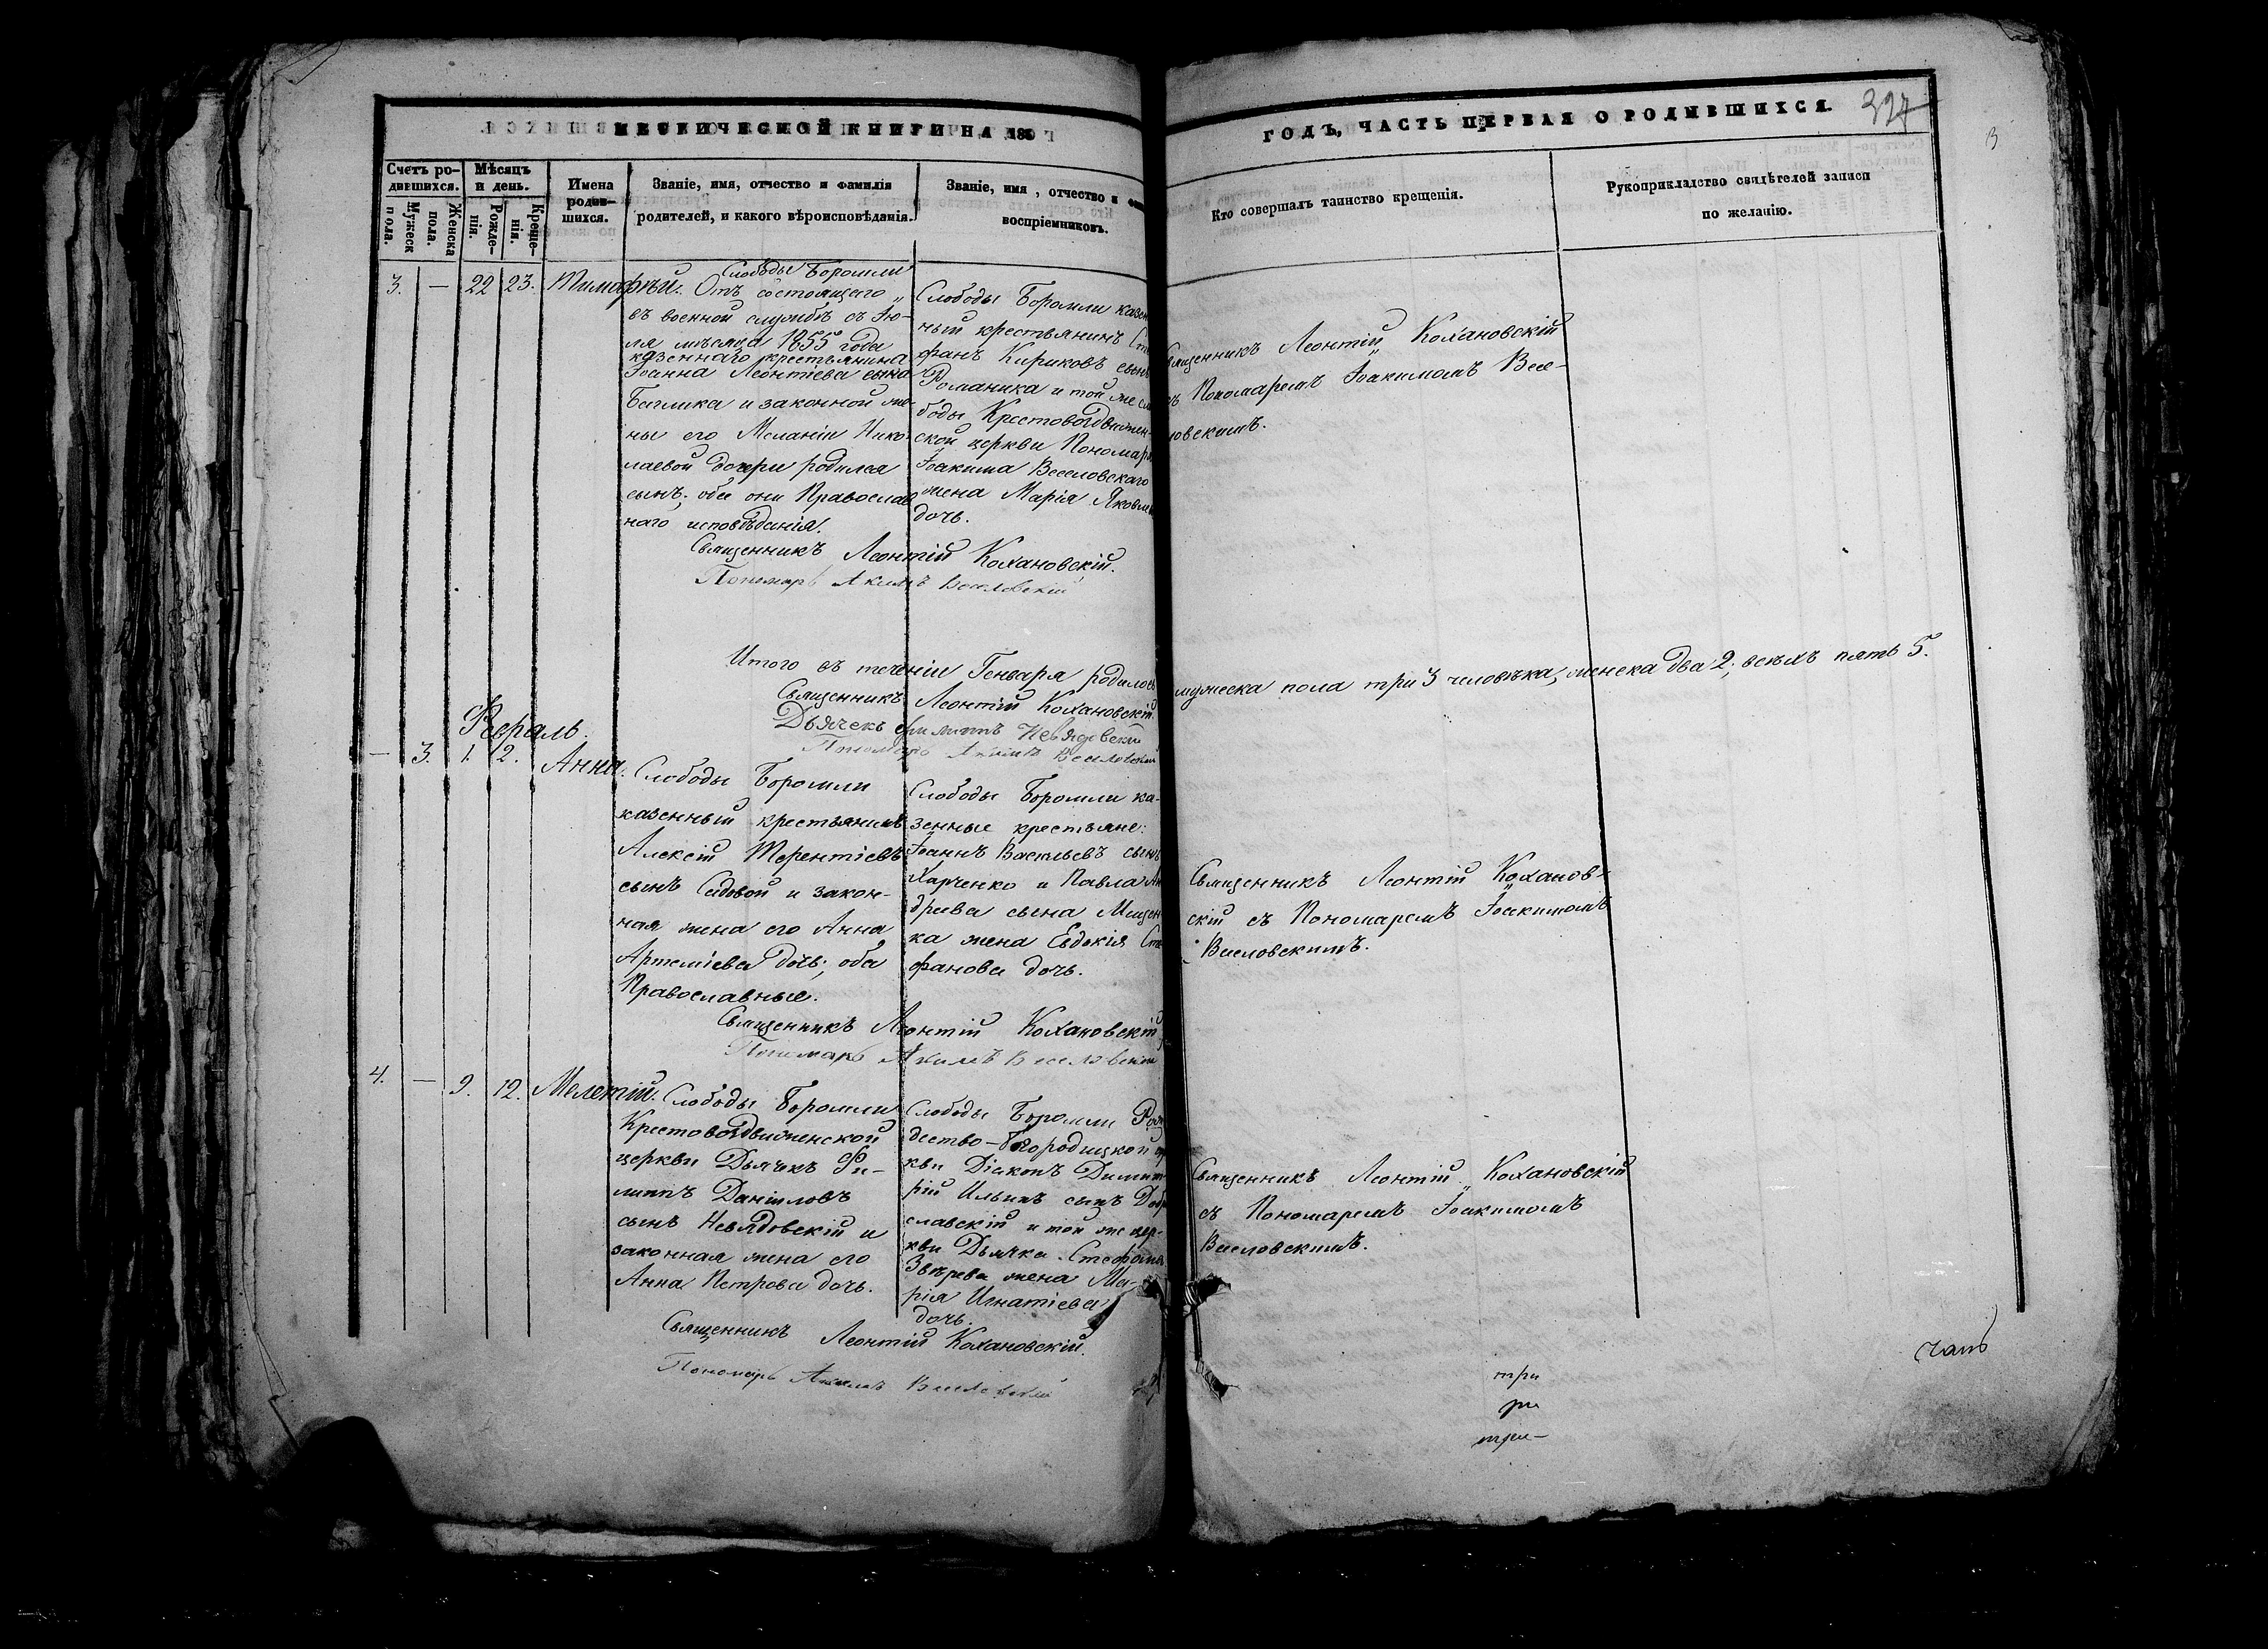 МЕТРИЧЕСКОЙ КНИГИ НА 185
ГОДЪ, ЧАСТЬ ПЕРВАЯ О РОДИВШИХСЯ.
327
Счетъ ро-
дившихся.
Мужеск
пола.
Женска
пола.
Мѣсяцъ
и день.
Рожде-
нія.
Креще-
нія.
Имена
родив-
шихся.
Званіе, имя, отчество и фамилія
родителей, и какого вѣроисповѣданія.
Званіе, имя, отчество и
воспріемниковъ.
Кто совершалъ таинство крещенія.
Рукоприкладство свидѣтелей записи
по желанію.
3. — 22 23. Тимофѣй.
Слободы Боромли
Отъ состоящего
въ военной службѣ съ Ію-
ля мѣсяца 1855 года
казеннаго крестьянина
Іоанна Леонтіева сына
Баглика и законной же-
ны его Меланіи Нико-
лаевой дочери родился
сынъ; обое они Православ
наго исповѣданія.
Слободы Боромли казен
ный крестьянинъ Сте
фанъ Кириковъ сынъ
Романика и той же сло
боды Крестовоздвижен-
ской церкви Пономаря
Іоакима Веселовскаго
жена Марія Яковле
дочь.
Священникъ Леонтій Кохановскій
съ Пономаремъ Іоакимомъ Весе-
ловскимъ.
Священникъ Леонтій Кохановскій.
Пономарь Акимъ Веселовскій
Итого въ теченіи Генваря родилось мужеска пола три 3 человѣка, женска два 2, всѣхъ пять 5.
Священникъ Леонтій Кохановскій.
Дьячекъ Филиппъ Невядовскій
Пономарь Акимъ Веселовскій
Февраль.
— 3. 1. 2. Анна.
Слободы Боромли
казенный крестьянинъ
Алексій Терентіевъ
сынъ Садовой и закон-
ная жена его Анна
Артеміева дочь; оба
Православные.
Слободы Боромли ка-
зенные крестьяне:
Іоаннъ Васильевъ сынъ
Харченко и Павла Ан
дреева сына Мищен
ка жена Евдокія Сте
фанова дочь.
Священникъ Леонтій Коханов-
скій съ Пономаремъ Іоакимомъ
Веселовскимъ.
Священникъ Леонтій Кохановскій
Пономарь Акимъ Веселовскій
4. — 9. 12. Мелетій.
Слободы Боромли
Крестовоздвиженской
церкви Дьячекъ Фи-
липпъ Даніиловъ
сынъ Невядовскій и
законная жена его
Анна Петрова дочь.
Слободы Боромли Рож
дество-Богородицкой цер
кви Діаконъ Димит
рій Ильинъ сынъ Добро
славскій и той же цер-
кви Дьячка Стефана
Звѣрева жена Ма-
рія Игнатіева
дочь.
Священникъ Леонтій Кохановскій
съ Пономаремъ Іоакимомъ
Веселовскимъ.
Священникъ Леонтій Кохановскій.
Пономарь Акимъ Веселовскій
три
ри